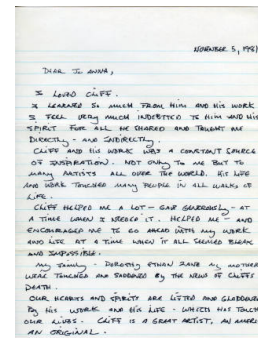 NOVEMBER 5, 1981
DEAR JO ANNA,
I LOVED CLIFF.
I LEARNED SO MUCH FROM HIM AND HIS WORK
I FEEL VERY MUCH INDEBTED TO HIM AND HIS
SPIRIT FOR ALL HE SHARED AND TAUGHT ME
DIRECTLY - AND INDIRECTLY.
CLIFF AND HIS WORK WAS A CONSTANT SOURCE
OF INSPIRATION. NOT ONLY TO ME BUT TO
MANY ARTISTS ALL OVER THE WORLD. HIS LIFE
AND WORK TOUCHED MANY PEOPLE IN ALL WALKS OF
LIFE.
CLIFF HELPED ME A LOT - GAVE GENEROUSLY - AT
A TIME WHEN I NEEDED IT. HELPED ME - AND
ENCOURAGED ME TO GO AHEAD WITH MY WORK
AND LIFE AT A TIME WHEN IT ALL SEEMED BLEAK
AND IMPOSSIBLE.
MY FAMILY - DOROTHY ETHAN ZANE ALL
WERE TOUCHED AND SADDENED BY THE NEWS OF CLIFFS
DEATH.
OUR HEARTS AND SPIRITS ARE LIFTED AND GLADDENED
BY HIS WORK AND HIS LIFE - WHICH HAS TOUCH
OUR LIVES. CLIFF IS A GREAT ARTIST, AN AMERI
AN ORIGINAL.